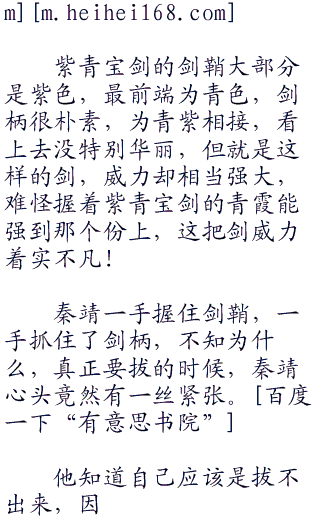 m][m.heihei168.com]
紫青宝剑的剑鞘大部分
是紫色，最前端为青色，剑
柄很朴素，为青紫相接，看
上去没特别华丽，但就是这
样的剑，威力却相当强大，
难怪握着紫青宝剑的青霞能
强到那个份上，这把剑威力
着实不凡！
秦靖一手握住剑鞘，一
手抓住了剑柄，不知为什
么，真正要拔的时候，秦靖
心头竟然有一丝紧张。[百度
一下“有意思书院”]
他知道自己应该是拔不
出来，因